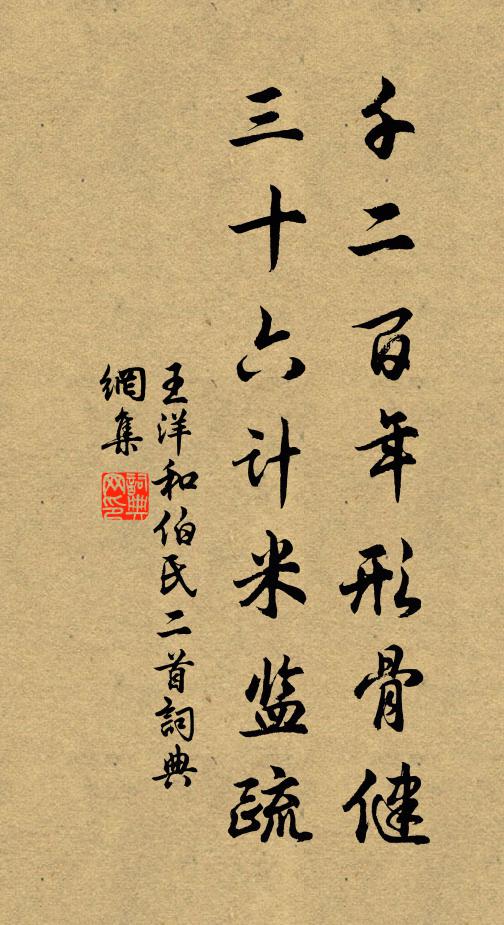 千二百年形骨健
三十六计米监疏
王洋和伯氏二首詞典
網集
詞典
网印